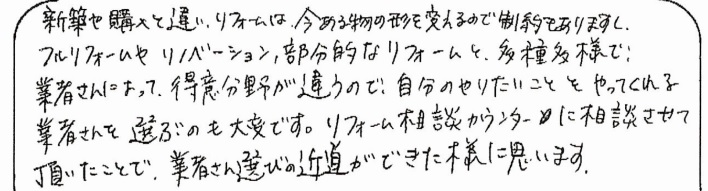 新築や購入と違い、リフォームは、今ある物の形を変えるので制約もありますし、
フルリフォームや リノベーション、部分的なリフォームと、多種多様で、
業者さんによって、得意分野が違うので、自分のやりたいこと を やってくれる
業者さんを 選ぶのも大変です。リフォーム相談カウンターに相談させて
頂いたことで、業者さん選びの近道ができた様に思います。